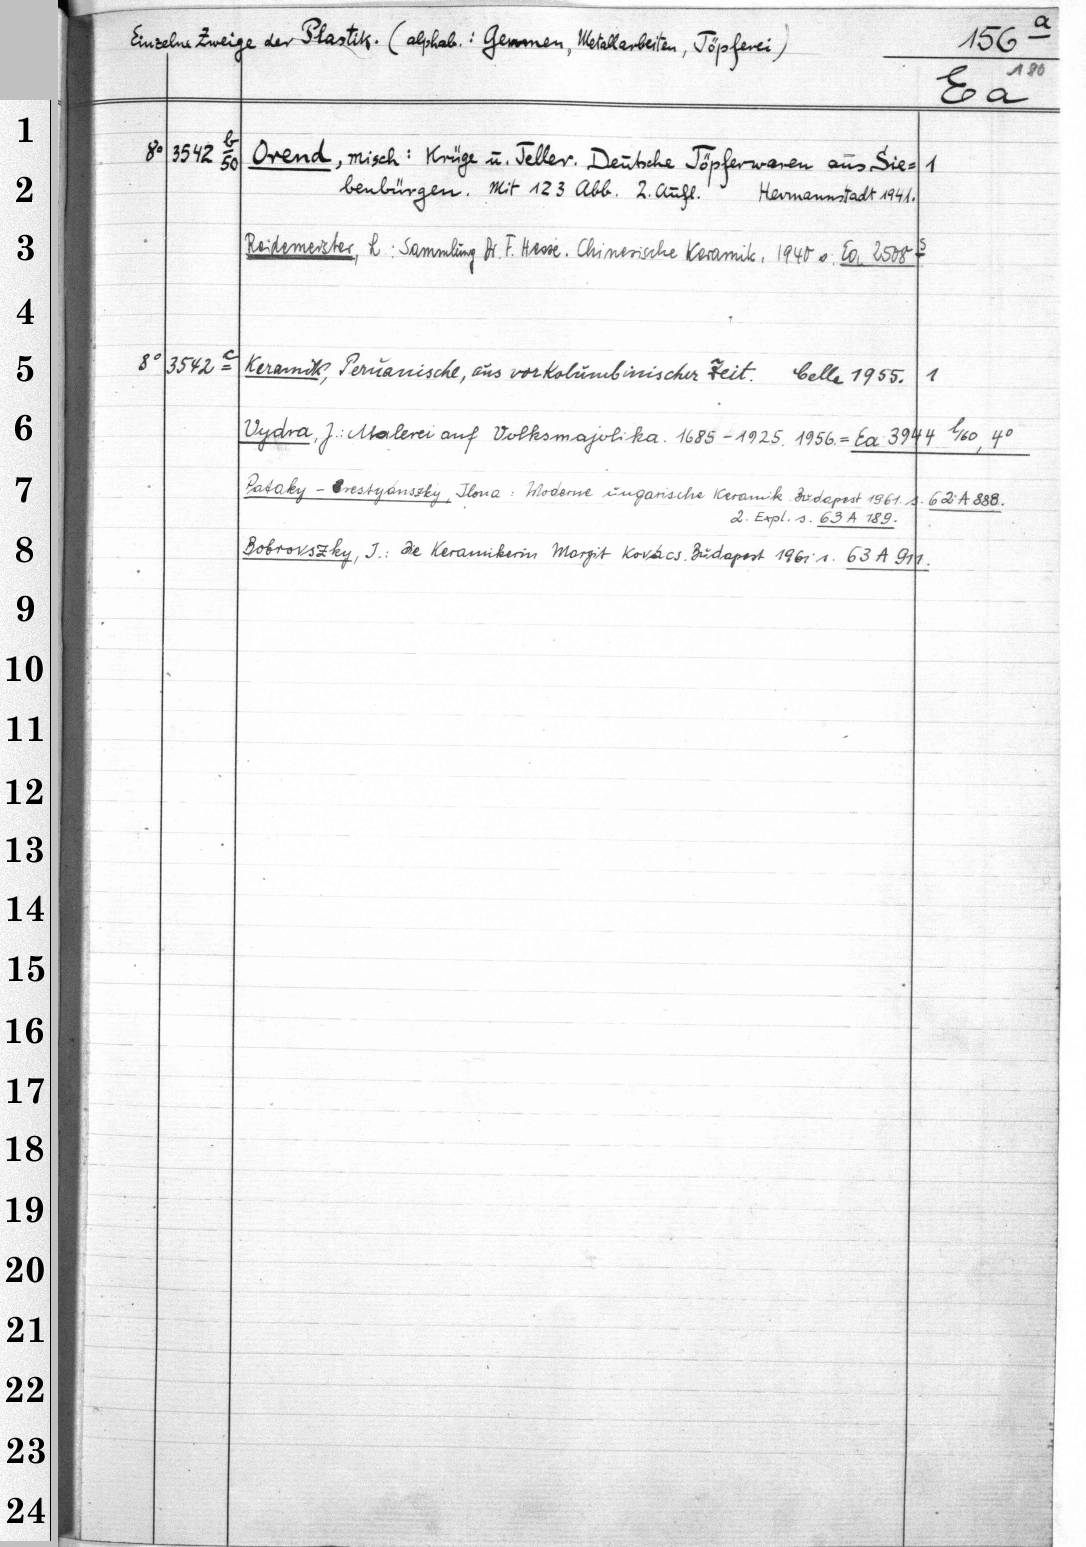 Einzelne Zweige der Plastik. (alphab.: Gemmen, Metallarbeiten, Töpferei) 156 a
Ea 180
1
8° 3542 b/50 Orend, Misch: Krüge u. Teller. Deutsche Töpferwaren aus Sie= 1
2
benbürgen. Mit 123 Abb. 2. Aufl. Hermannstadt 1941.
3
Reidemeister, L: Sammlung Dr. F. Hesse. Chinesische Keramik. 1940 s. Ea 2508 s
4
5
8° 3542 c Keramik, Peruanische, aus vorkolumbinischer Zeit. Celle 1955. 1
6
Vydra, J.: Malerei auf Volksmajolika. 1685-1925. 1956. = Ea 3944 l/60, 4°
7
Pataky-Brestyánszky, Ilona: Moderne ungarische Keramik. Budapest 1961. s. 62 A 888.
2. Expl. s. 63 A 189.
8
Bobrovszky, I.: Die Keramikerin Margit Kovács. Budapest 1961 s. 63 A 911.
9
10
11
12
13
14
15
16
17
18
19
20
21
22
23
24